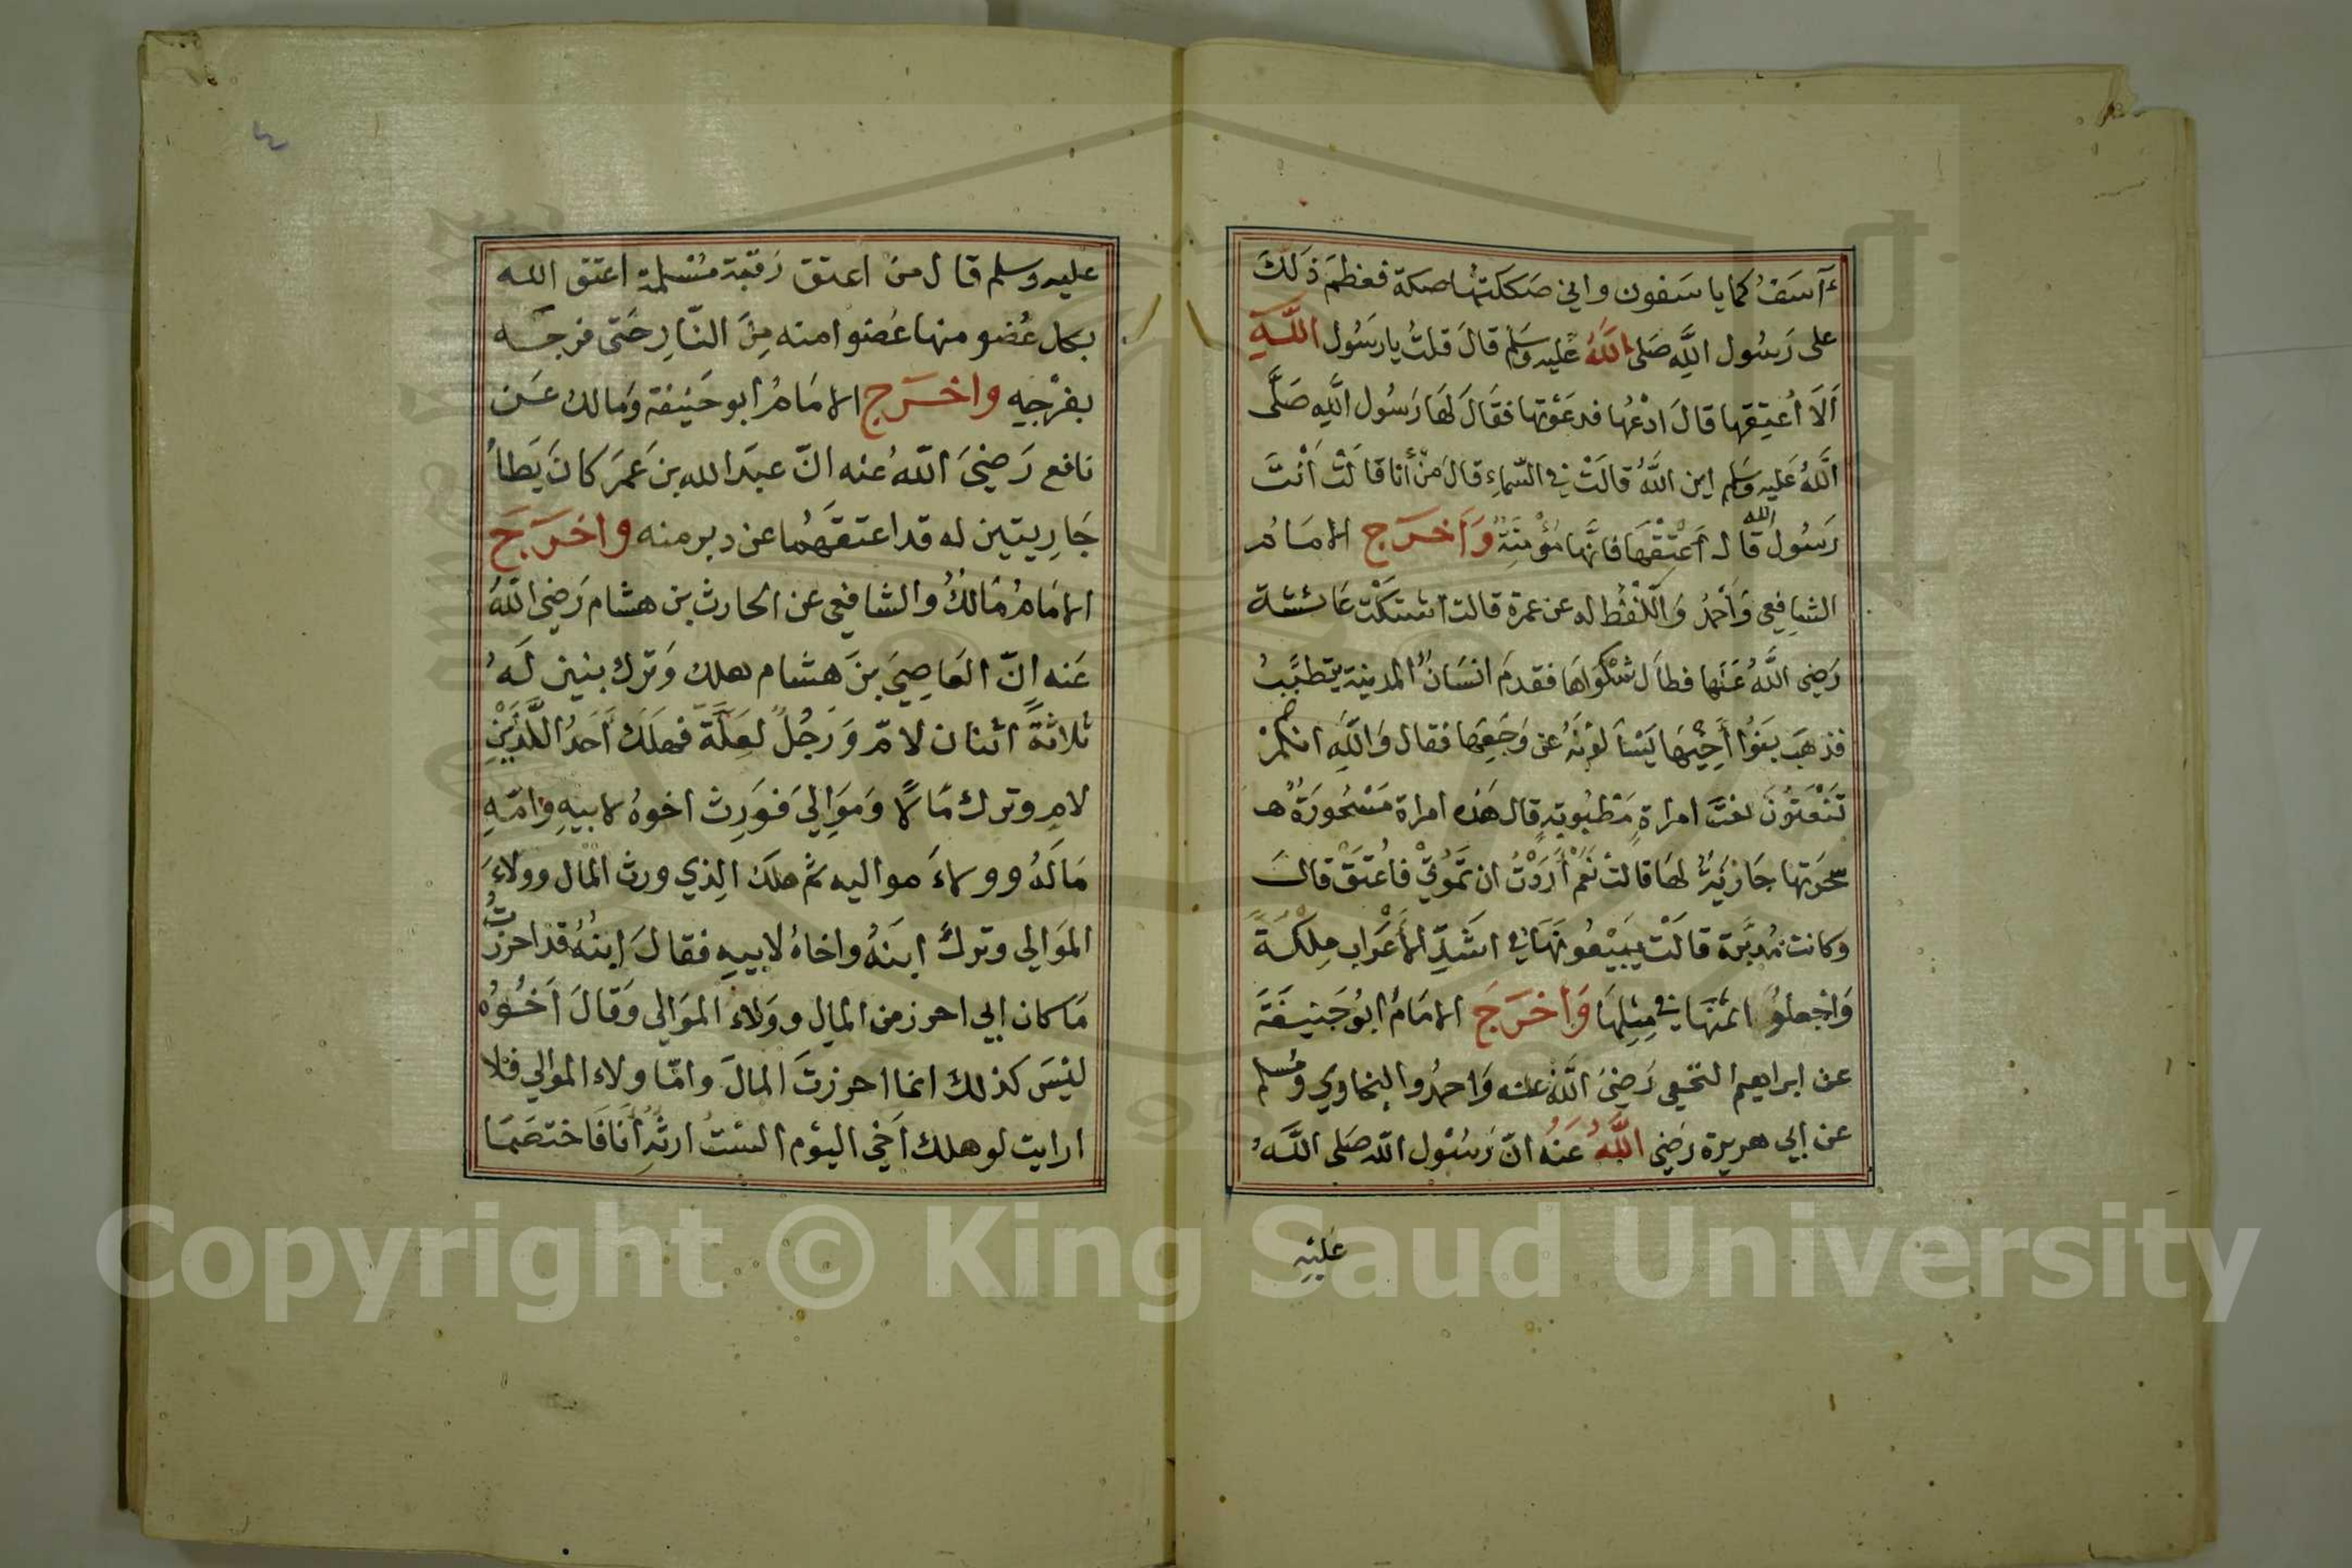 ءَآسَفُ كما ياسَفون واني صَكَكتُها صكة فعظمَ ذَلكَ
على رَسُول اللَّه صَلى اللَّهُ عَليه وسَلم قالَ قلتُ يا رسَول اللَّهِ
اَلَا اُعتِقها قالَ ادْعُها فدعَوتها فقَالَ لهَا رَسُول اللَّهِ صَلَّى
اللَّهُ عَليه وَسَلم اين اللَّهُ قالَتْ في السّمَاءِ قالَ مَنْ أنا قالَتْ اَنْتَ
رَسُول الله قال اَعْتِقْهَا فانَّها مُؤْمِنَةٌ وَاَخرَج الامَامُ
الشافِعي وَاَحمدُ وَاللّفظُ له عن عمرة قالت اشتكَتْ عَائشة
رَضِى اللَّهُ عَنها فطاَل شكوَاهَا فقدمَ انسَانٌ المدينة يتطبَّبُ
فذهبَ بَنوُا أخِيْهَا يَسْأَلوْنَهُ عن وَجَعِهَا فقال وَاللَّهِ انكمْ
تَنْعَتُوْنَ نعتَ امراةٍ مَطبُوبةٍ قال هَذه امراة مَسْحُورَةٌ
سحرَتها جَارِيَةٌ لهَا قالتْ نَعَمْ أَرَدْتُ ان تَمُوْتي فاُعتَقْ قالَ
وكانت مُدبَّرة قالَتْ يبِيْعُونهَا في اشَدِّ الأَعْرَاب مِلكَةً
وَاجْعلوُا ثمنَهَا في مِثلِهَا وَاَخرَجَ الامَامُ ابوُ حَنيفَةَ
عن ابراهيم النخعى رَضِىَ اللَّهُ عنه وَاحمدُ والبخاوي ومُسلم
عن ابي هريرة رَضِي اللَّهُ عَنهُ انّ رَسُوْل اللّه صَلى اللَّهُ
عَليْهِ
عليه وسلم قال منَ اعتق رَقبَة مُسْلمة اعتق الله
بكل عُضو منها عُضوا منه مِنَ النّارِ حَتى فرجَه
بفرْجِهِ واخرَج الامَامُ ابو حَنيفة وَمالك عَن
نافع رَضِيَ اللّهُ عنه انّ عبدَ الله بن عَمَر كانَ يَطأُ
جَارِيتين له قد اعتقَهُما عن دبر منه واخرَجَ
الامَامُ مَالكُ والشافعي عن الحارث بن هشام رَضِىَ اللّهُ
عَنه انّ العَاصِيَ بنَ هشَام هلك وَترك بنين لَهُ
ثلاثَةً اثنان لامّ وَرَجُلٌ لعَلَّة فهلَكَ أَحدُ اللَّذَيْنِ
لامِ وترك مَالًا وَموَالِيَ فوَرِثَ اخوهُ لابيهِ وامّهِ
مَالَهُ وولاءَ مواليه ثم هلكَ الذي ورث المال وولاءَ
الموَالي وتركَ ابنَهُ واخاهُ لابيهِ فقالَ ابنُهُ قد احرزتُ
مَا كان ابي احرز من المال ووَلاء الموَالي وَقالَ أَخُوْه
ليْسَ كذلك انما احرزتَ المالَ وامّا ولاء الموالي فلا
ارايت لو هلك اَخي اليوْم السْتُ ارثُهِ أَنَا فَاختصَمَا
٤
Copyright © King Saud University